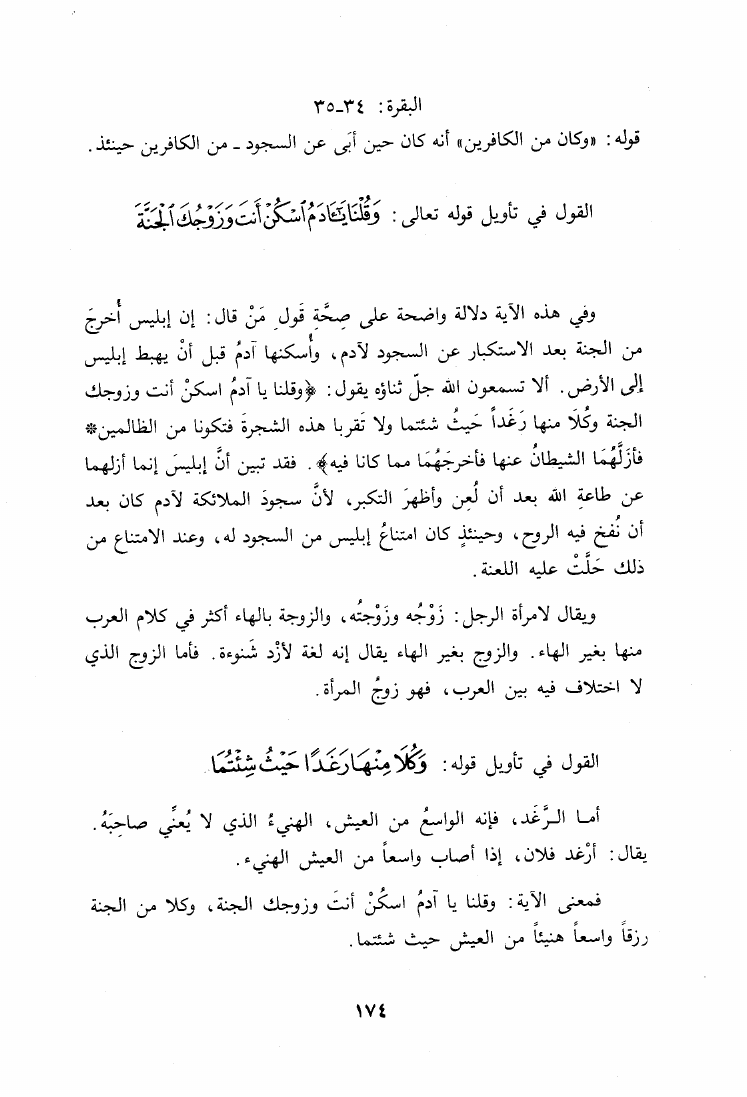 البقرة: ٣٤-٣٥
قوله: «وكان من الكافرين» أنه كان حين أبَى عن السجود - من الكافرين حينئذ.
القول في تأويل قوله تعالى: وَقُلْنَا يَـٰٓـَٔادَمُ ٱسْكُنْ أَنتَ وَزَوْجُكَ ٱلْجَنَّةَ
وفي هذه الآية دلالة واضحة على صِحَّةِ قَول مَنْ قال: إن إبليس أُخرجَ
من الجنة بعد الاستكبار عن السجود لآدم، وأُسكنها آدمُ قبل أنْ يهبط إبليس
إلى الأرض. ألا تسمعون الله جلّ ثناؤه يقول: ﴿وقلنا يا آدمُ اسكنْ أنت وزوجك
الجنة وكُلَا منها رَغَداً حَيثُ شئتما ولا تَقربا هذه الشجرةَ فتكونا من الظالمين*
فأزَلَّهُمَا الشيطانُ عنها فأخرجَهُمَا مما كانا فيه﴾. فقد تبين أنَّ إبليسَ إنما أزلهما
عن طاعةِ الله بعد أن لُعِن وأظهرَ التكبر، لأنَّ سجودَ الملائكة لآدم كان بعد
أن نُفخ فيه الروح، وحينئذٍ كان امتناعُ إبليس من السجود له، وعند الامتناع من
ذلك حَلَّتْ عليه اللعنة.
ويقال لامرأة الرجل: زَوْجُه وزَوْجتُه، والزوجة بالهاء أكثر في كلام العرب
منها بغير الهاء. والزوج بغير الهاء يقال إنه لغة لأزْد شَنوءة. فأما الزوج الذي
لا اختلاف فيه بين العرب، فهو زوجُ المرأة.
القول في تأويل قوله: وَكُلَا مِنْهَا رَغَدًا حَيْثُ شِئْتُمَا
أما الرَّغَد، فإنه الواسعُ من العيش، الهنيءُ الذي لا يُعنِّي صاحبَهُ.
يقال: أرْغد فلان، إذا أصاب واسعاً من العيش الهنيء.
فمعنى الآية: وقلنا يا آدمُ اسكُنْ أنتَ وزوجك الجنة، وكلا من الجنة
رزقاً واسعاً هنيئاً من العيش حيث شئتما.
١٧٤